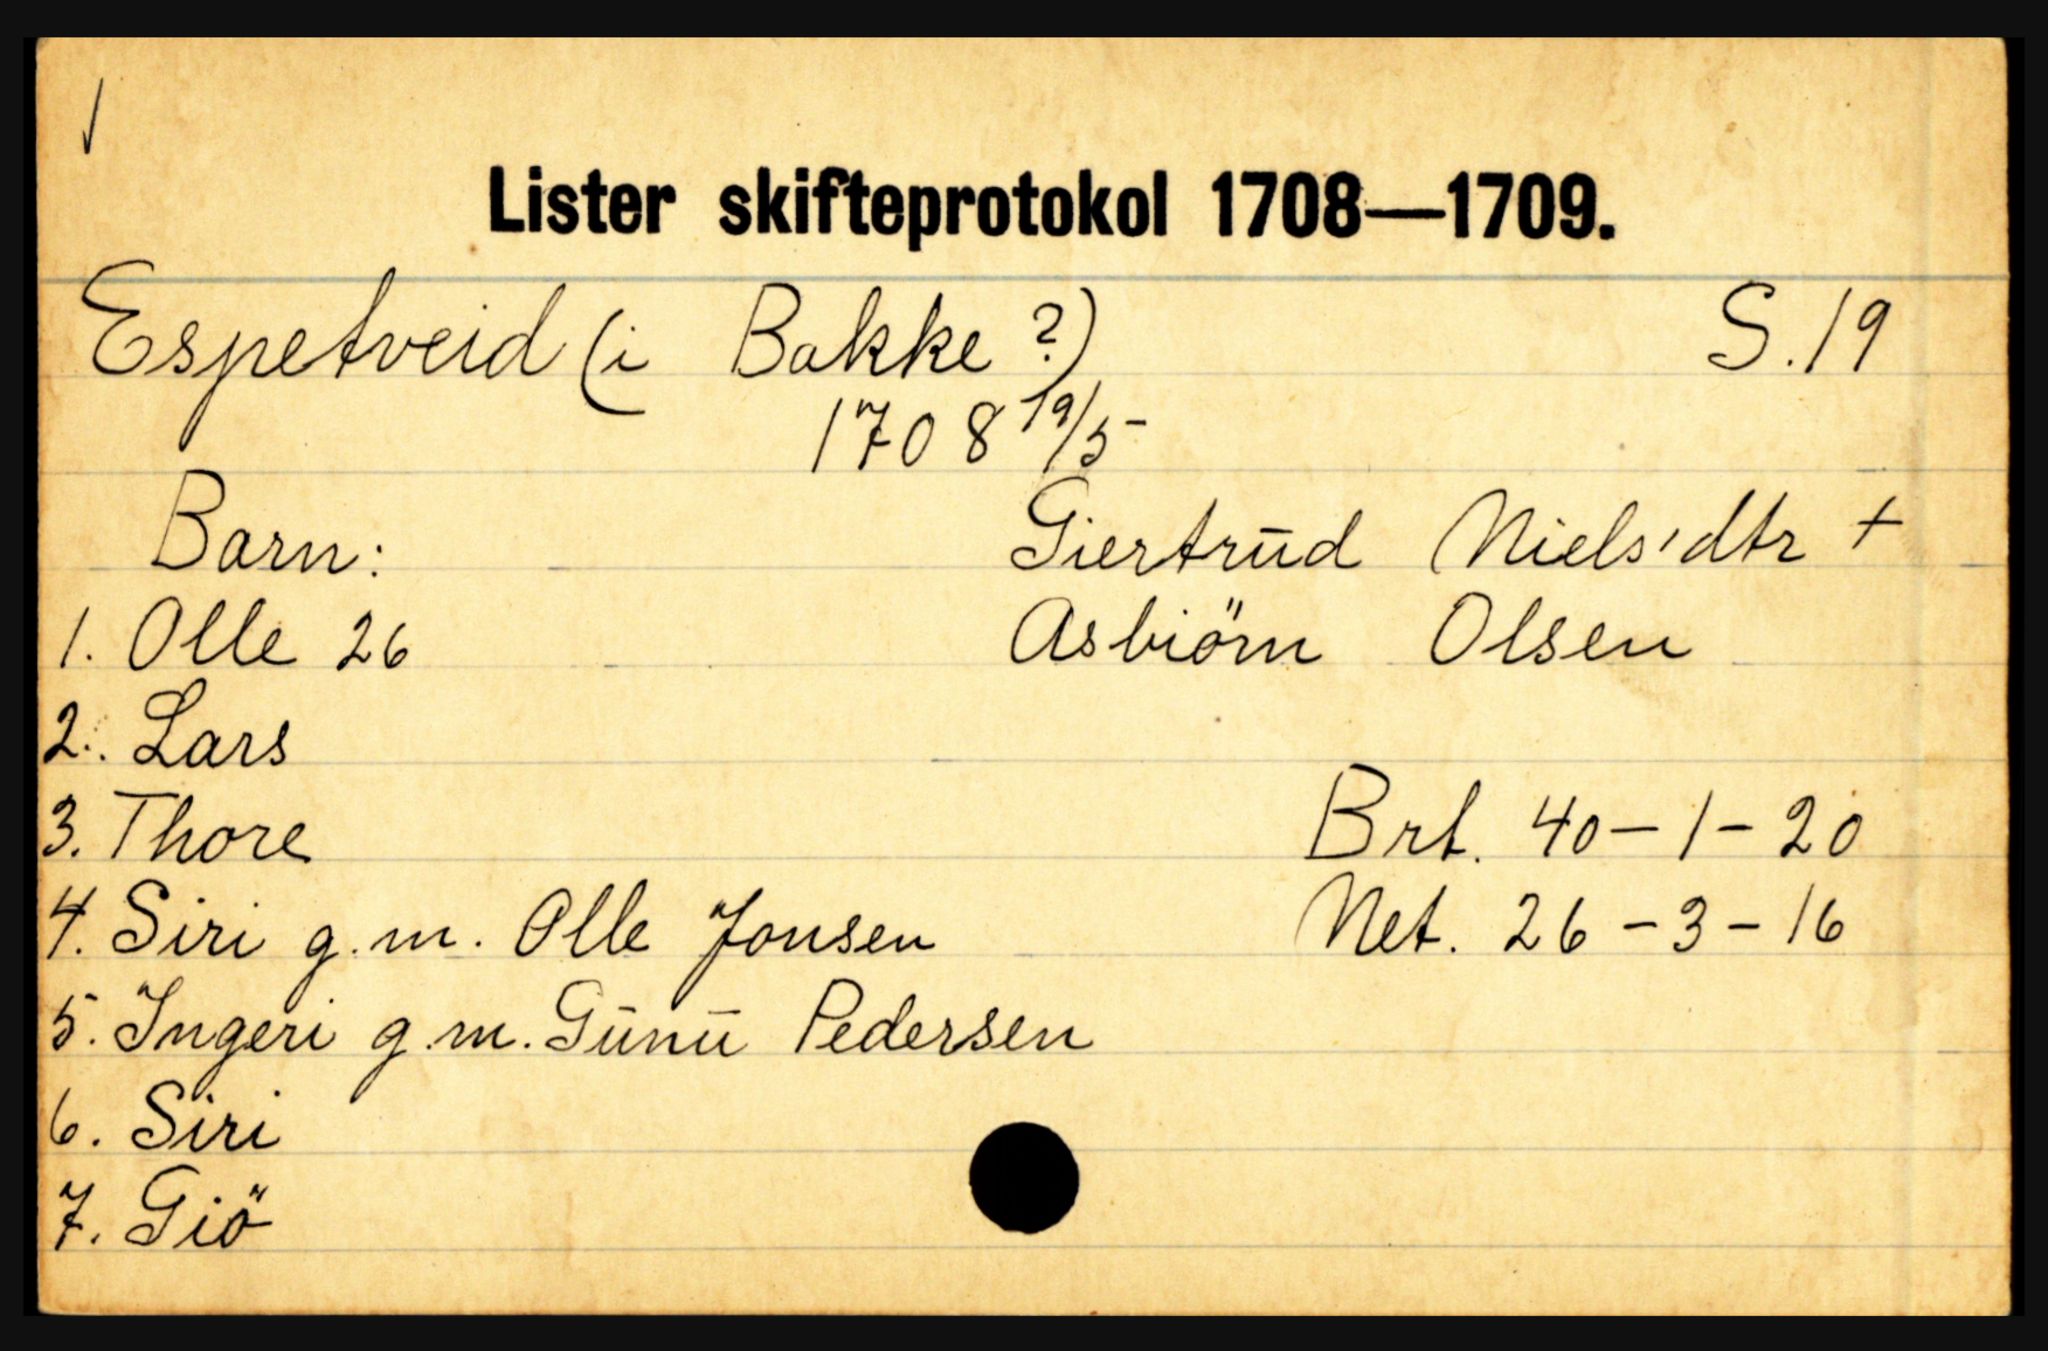 Lister skifteprotokol 1708—1709.
Espetveid (i Bakke ?) S. 19
1708 19/5
Barn: Giertrūd Niels'dtr +
1. Olle 26 Asbiörn Olsen
2. Lars
3. Thore Brt. 40 - 1 - 20
4. Siri g.m. Olle Jonsen Net. 26 - 3 - 16
5. Ingeri g.m. Gūnū Pedersen
6. Siri
7. Giö